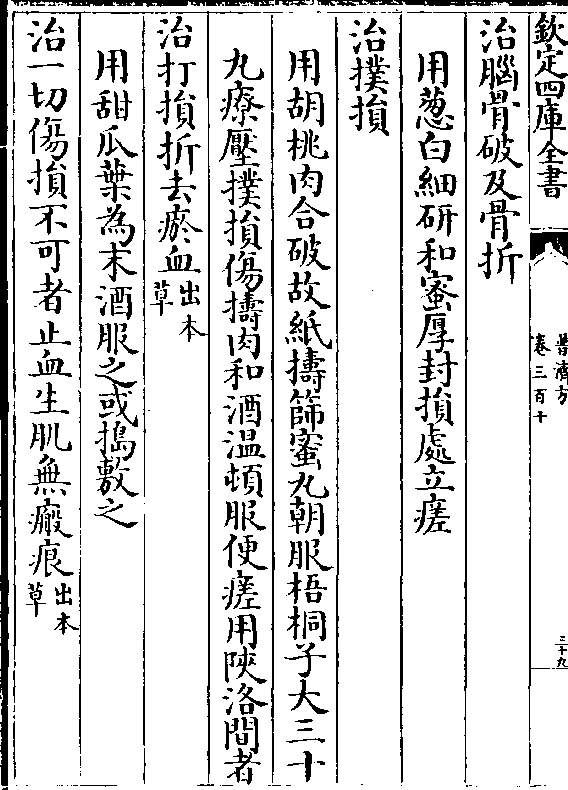 欽定四庫全書
普濟方
卷三百十
三十九
治腦骨破及骨折
用葱白細研和蜜厚封損處立瘥
治撲損
用胡桃肉合破故紙擣篩蜜丸朝服梧桐子大三十
丸療壓撲損傷擣肉和酒温頓服便瘥用陜洛間者
治打損折去瘀血出本草
用甜瓜葉為末酒服之或搗敷之
治一切傷損不可者止血生肌無癜痕出本草